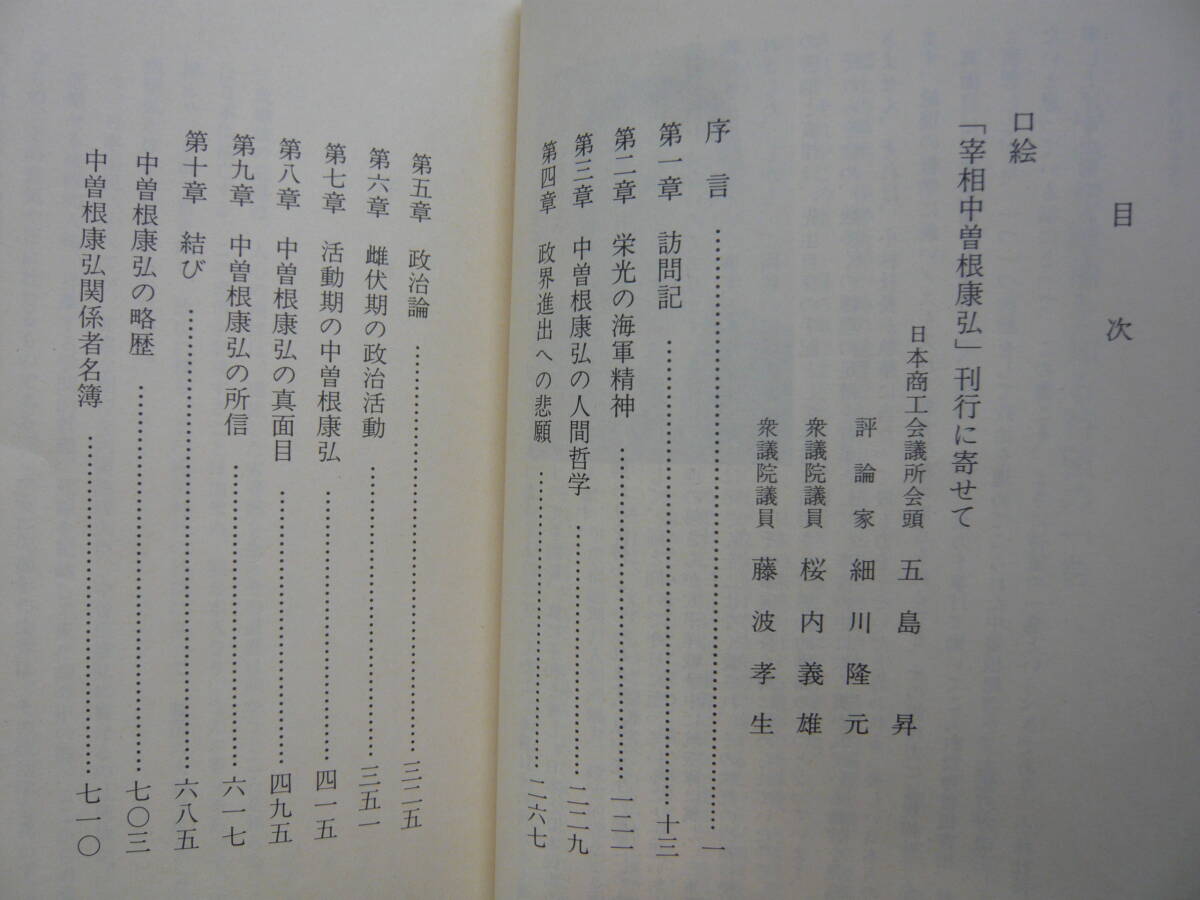 目次
口絵
「宰相中曽根康弘」刊行に寄せて
日本商工会議所会頭 五島昇
評論家 細川隆元
衆議院議員 桜内義雄
衆議院議員 藤波孝生
序言……………………一
第一章 訪問記……………………十三
第二章 栄光の海軍精神……………………一二一
第三章 中曽根康弘の人間哲学……………………二二九
第四章 政界進出への悲願……………………二六七
第五章 政治論……………………三二五
第六章 雌伏期の政治活動……………………三五一
第七章 活動期の中曽根康弘……………………四一五
第八章 中曽根康弘の真面目……………………四九五
第九章 中曽根康弘の所信……………………六一七
第十章 結び……………………六八五
中曽根康弘の略歴……………………七〇三
中曽根康弘関係者名簿……………………七一〇